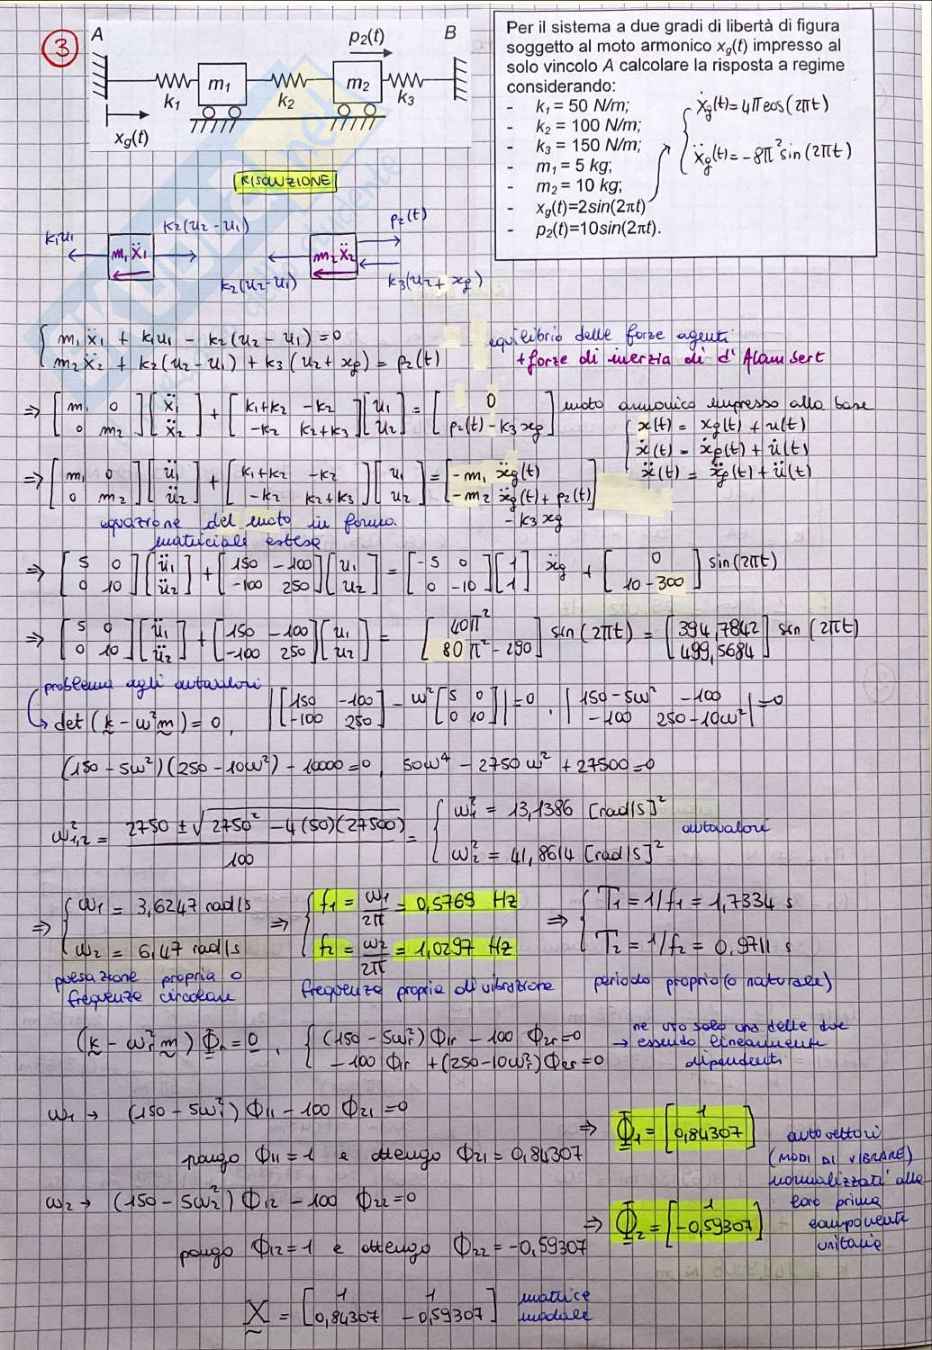 3
A
p₂(t)
B
m₁
m₂
k₁
k₂
k₃
x_g(t)
Per il sistema a due gradi di libertà di figura
soggetto al moto armonico x_g(t) impresso al
solo vincolo A calcolare la risposta a regime
considerando:
- k₁ = 50 N/m;
- k₂ = 100 N/m;
- k₃ = 150 N/m;
- m₁ = 5 kg;
- m₂ = 10 kg;
- x_g(t)=2sin(2πt)
- p₂(t)=10sin(2πt).
ẋg(t)=4πcos(2πt)
ẍg(t)=-8π²sin(2πt)
RISOLUZIONE
k₁u₁
k₂(u₂-u₁)
m₁ẍ₁
m₂ẍ₂
p₂(t)
k₂(u₂-u₁)
k₃(u₂+xg)
{ m₁ẍ₁ + k₁u₁ - k₂(u₂-u₁)=0
m₂ẍ₂ + k₂(u₂-u₁) + k₃(u₂+xg) = p₂(t)
equilibrio delle forze agenti
+forze di inerzia di d'Alambert
⇒ [m₁ 0; 0 m₂][ẍ₁; ẍ₂] + [k₁+k₂ -k₂; -k₂ k₂+k₃][u₁; u₂] = [0; p₂(t)-k₃xg]
moto armonico impresso alla base
{ x(t) = xg(t) + u(t)
ẋ(t) = ẋg(t) + u̇(t)
ẍ(t) = ẍg(t) + ü(t)
⇒ [m₁ 0; 0 m₂][ü₁; ü₂] + [k₁+k₂ -k₂; -k₂ k₂+k₃][u₁; u₂] = [-m₁ ẍg(t); -m₂ ẍg(t) + p₂(t) - k₃xg]
equazione del moto in forma
matriciale estesa
⇒ [5 0; 0 10][ü₁; ü₂] + [150 -100; -100 250][u₁; u₂] = [-5 0; 0 -10][1; 1] ẍg + [0; 10-300] sin(2πt)
⇒ [5 0; 0 10][ü₁; ü₂] + [150 -100; -100 250][u₁; u₂] = [40π²; 80π²-290] sin(2πt) = [394,7842; 499,5684] sin(2πt)
problema agli autovalori
det(k-ω²m)=0, |[150 -100; -100 250] - ω²[5 0; 0 10]|=0, |150-5ω² -100; -100 250-10ω²|=0
(150-5ω²)(250-10ω²)-10000=0, 50ω⁴-2750ω²+27500=0
ω²₁,₂ = 2750 ± √2750²-4(50)(27500) / 100 = { ω₁² = 13,1386 [rad/s]²
ω₂² = 41,8614 [rad/s]²
autovalori
⇒ { ω₁ = 3,6247 rad/s
ω₂ = 6,47 rad/s
⇒ { f₁ = ω₁/2π = 0,5769 Hz
f₂ = ω₂/2π = 1,0297 Hz
⇒ { T₁ = 1/f₁ = 1,7334 s
T₂ = 1/f₂ = 0,9711 s
pulsazione propria o
frequenze circolare
frequenze propria di vibrazione
periodo proprio (o naturale)
(k-ωr²m)Φ₁=0, { (150-5ωr²)Φ1r - 100 Φ2r=0
-100 Φ1r + (250-10ωr²)Φ2r=0
ne uso solo una delle due
→ essendo linearmente
dipendenti
ω₁ → (150-5ω₁²)Φ₁₁ - 100 Φ₂₁ =0
pongo Φ₁₁=1 e ottengo Φ₂₁ = 0,84307
⇒ Φ₁ = [1; 0,84307]
ω₂ → (150-5ω₂²)Φ₁₂ - 100 Φ₂₂=0
pongo Φ₁₂=1 e ottengo Φ₂₂ = -0,59307
⇒ Φ₂ = [1; -0,59307]
autovettori
(MODI DI VIBRARE)
normalizzati alla
loro prima
componente
unitaria
X = [1 1; 0,84307 -0,59307]
matrice
modale